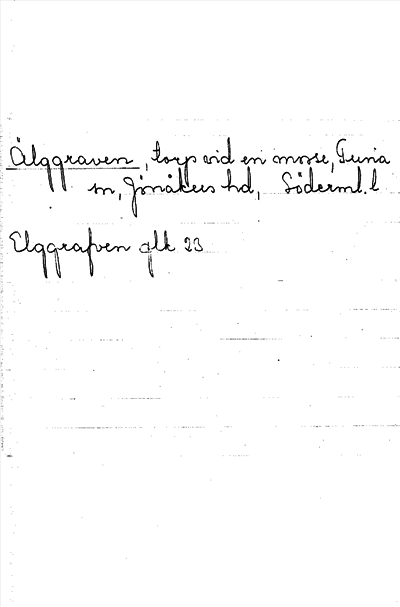 Älggraven, torp vid en mosse, Tuna
sn, Jönåkers hd, Söderml. l
Elggrafven glk 23